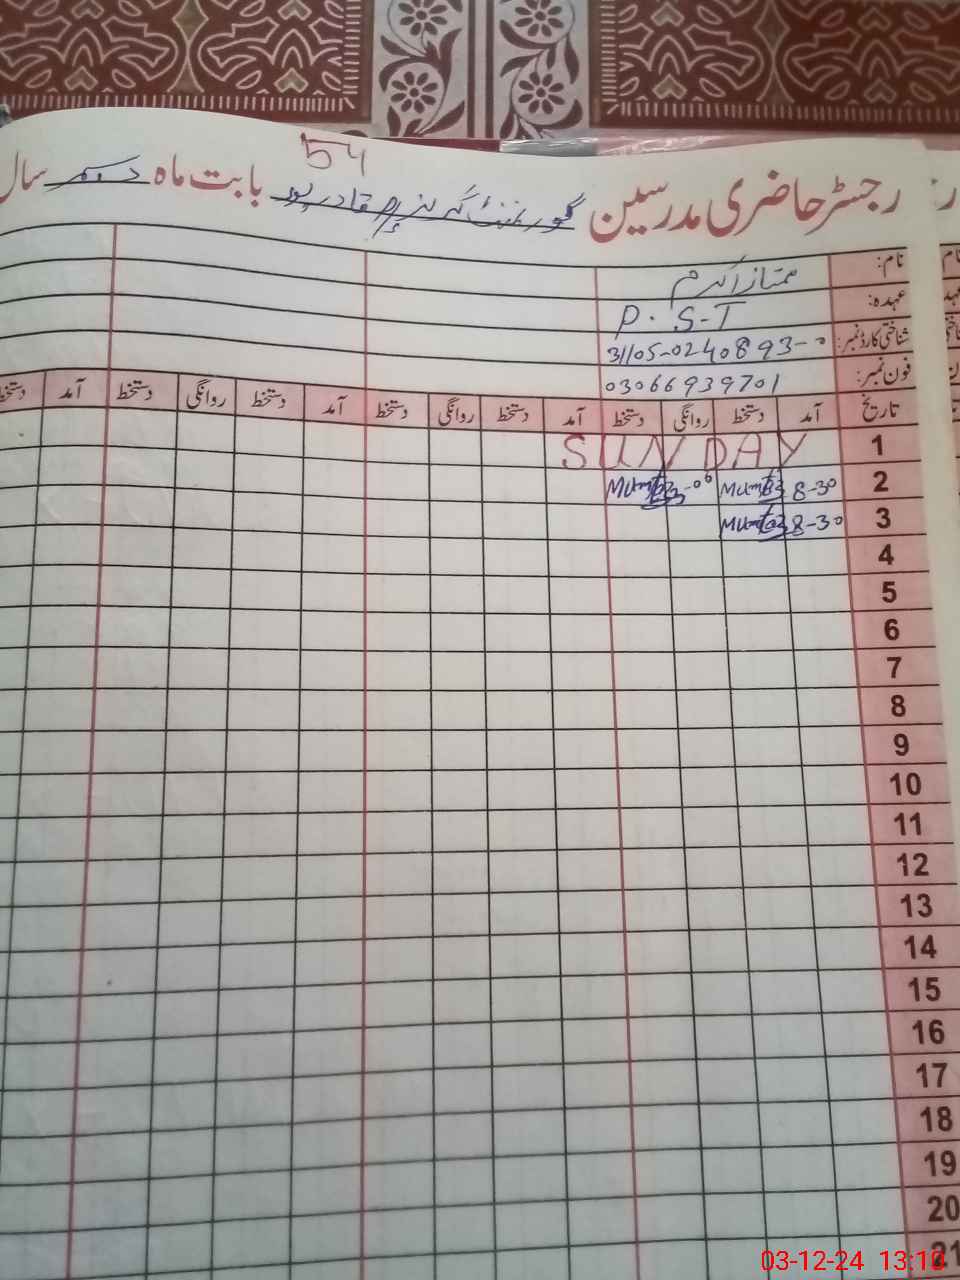 54
رجسٹر حاضری مدرسین گورنمنٹ گرلز قادرپور بابت ماہ دسمبر سال
نام: ممتاز اکرم
عہدہ: P.S.T
شناختی کارڈ نمبر: 31105-0240893-0
فون نمبر: 03066939701
تاریخ آمد دستخط روانگی دستخط آمد دستخط روانگی دستخط آمد دستخط روانگی دستخط آمد دستخط
1 SUNDAY
2 8-30 Mumtaz Mumtaz
3 8-30 Mumtaz
4
5
6
7
8
9
10
11
12
13
14
15
16
17
18
19
20
21
03-12-24 13:10